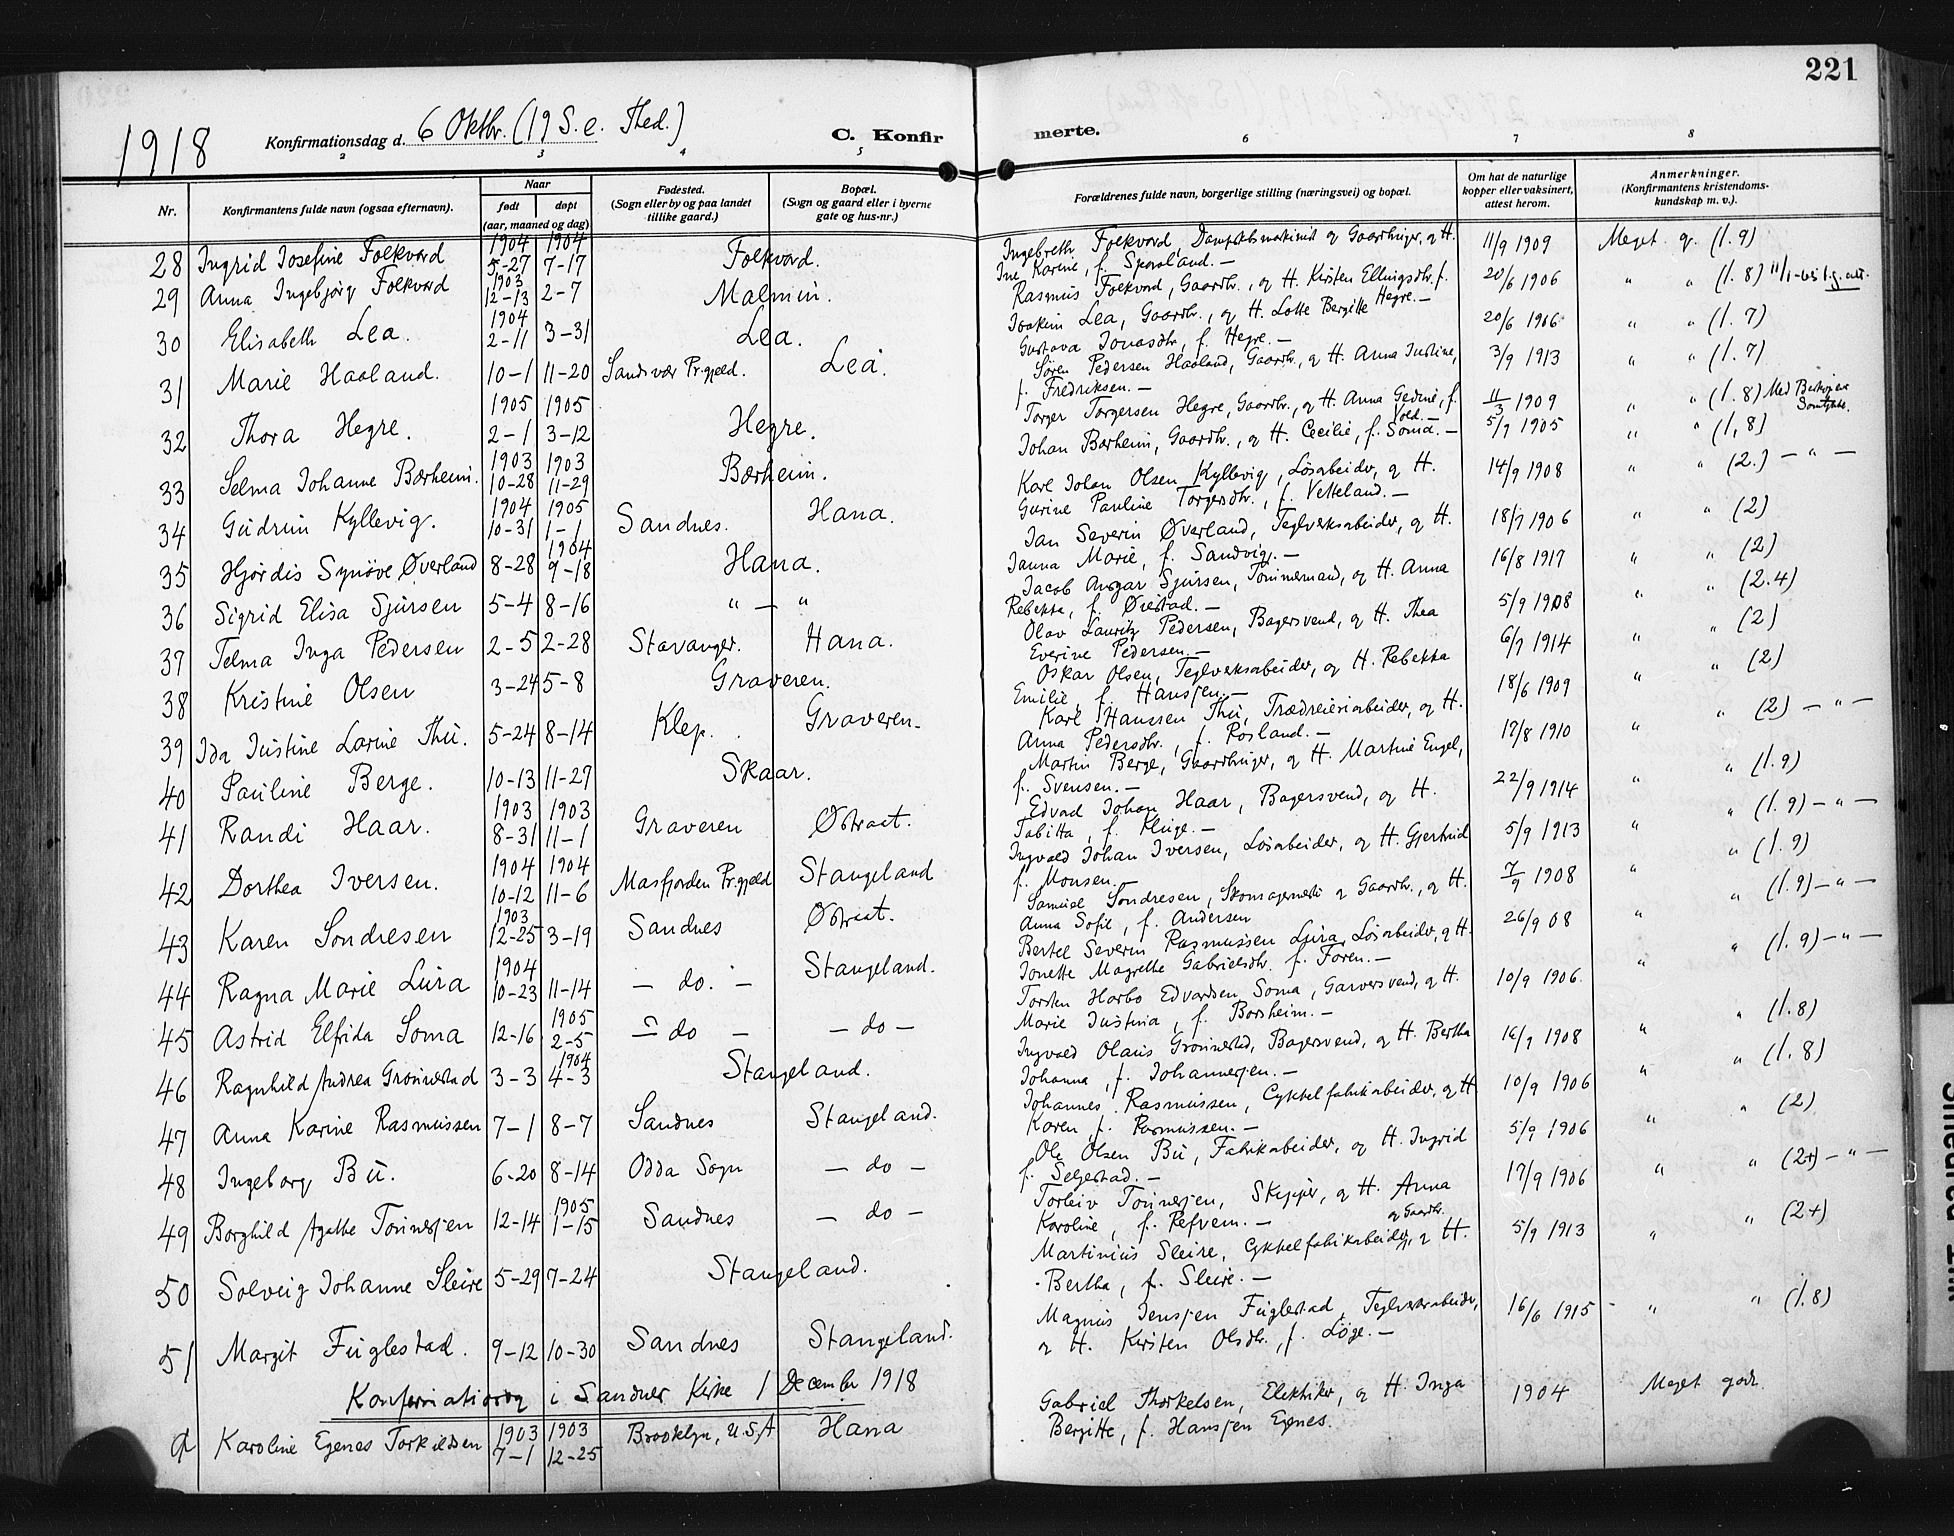 221
1918 Konfirmationsdag d. 6 Oktbr. (19 S. e. Tred.) C. Konfir merte.
2 3 4 5 6 7 8
Nr. Konfirmantens fulde navn (ogsaa efternavn). Naar født døpt (aar, maaned og dag) Fødested. (Sogn eller by og paa landet tillike gaard.) Bopæl. (Sogn og gaard eller i byerne gate og hus-nr.) Forældrenes fulde navn, borgerlige stilling (næringsvei) og bopæl. Om hat de naturlige kopper eller vaksinert, attest herom. Anmerkninger. (Konfirmantens kristendoms-kundskap m. v.).
28 Ingrid Josefine Folkvord 1904 5-27 1904 7-17 Folkvord. Ingebreth Folkvord, Gaardbruger, og H. Ine Karine, f. Sporaland. — 11/9 1909 Meget g. (1.9)
29 Anna Ingebjørg Folkvord 1903 12-13 2-7 Malmin. Rasmus Folkvord, Gaardbr., og H. Kirsten Ellingsdtr. f. Hegre. — 20/6 1906 " " (1.8)
30 Elisabeth Lea. 1904 2-11 3-31 Lea. Joakim Lea, Gaardbr., og H. Lotte Bergitte Gustava Jonasdtr., f. Hegre. — 20/6 1906 " " (1.7)
31 Marie Haaland. 10-1 11-20 Sandsvær Pr.gjeld. Lea. Søren Pedersen Haaland, Gaardbr., og H. Anna Justine, f. Fredriksen. — 3/9 1913 " " (1.7)
32 Thora Hegre. 1905 2-1 1905 3-12 Hegre. Torger Torgersen Hegre, Gaardbr., og H. Anna Gedine, f. Vold. — 11/3 1909 " " (1.8)
33 Selma Johanne Bærheim. 1903 10-28 1903 11-29 Bærheim. Johan Bærheim, Gaardbr., og H. Cecilie, f. Soma. — 5/9 1905 " " (1,8)
34 Gudrun Kyllevig. 1904 10-31 1905 1-1 Sandnes. Hana. Karl Johan Olsen Kyllevig, Løsarbeider, og H. Gurine Pauline Torgersdtr., f. Vetteland. — 14/9 1908 " " (2.) — " —
35 Hjørdis Synøve Øverland 8-28 1904 9-18 Hana. Jan Severin Øverland, Teglverksarbeider, og H. Janna Marie, f. Sandvig. — 18/7 1906 " " (2)
36 Sigrid Elisa Sjursen 5-4 8-16 " — " Jacob Ansgar Sjursen, Tømmermand, og H. Anna Rebekka, f. Ørestad. — 16/8 1917 " " (2)
37 Telma Inga Pedersen 2-5 2-28 Stavanger. Hana. Olav Lauritz Pedersen, Bagersvend, og H. Thea Everine Pedersen. — 5/9 1908 " " (2.4)
38 Kristine Olsen 3-24 5-8 Graveren. Oskar Olsen, Teglverksarbeider, og H. Rebekka Emilie, f. Hansen. — 6/7 1914 " " (2)
39 Ida Justine Larine Thu. 5-24 8-14 Klep. Graveren. Karl Hanssen Thu, Trædreieriarbeider, og H. Anna Pedersdtr., f. Rosland. — 18/6 1909 " " (2)
40 Pauline Berge. 10-13 11-27 Skaar. Martin Berge, Gaardbruger, og H. Martine Engel, f. Svensen. — 17/8 1910 " " (2) — " —
41 Randi Haar. 1903 8-31 1903 11-1 Graveren Østraat. Edvad Johan Haar, Bagersvend, og H. Tabitta, f. Kluge. — 22/9 1914 " " (1.9)
42 Dorthea Iversen. 1904 10-12 1904 11-6 Masfjorden Pr.gjeld Stangeland Ingvald Johan Iversen, Løsarbeider, og H. Gjertrud f. Monsen. — 5/9 1913 " " (1.9) — " —
43 Karen Sondresen 1903 12-25 3-19 Sandnes Østraat. Samuel Sondresen, Skomagermester og Gaardbr., og H. Anna Sofie, f. Andersen 7/9 1908 " " (1.9)
44 Ragna Marie Lura 1904 10-23 11-14 — do. — Stangeland. Bertel Severin Rasmussen Lura, Løsarbeider, og H. Jonette Magrethe Gabrielsdtr. f. Foren. — 26/9 08 " " (1.9) — " —
45 Astrid Elfrida Soma 12-16 1905 2-5 — do — — do — Torsten Horbo Edvardsen Soma, Garversvend, og H. Marie Justina, f. Borsheim. — 10/9 1906. " " (1.9) — " —
46 Ragnhild Andrea Grønnestad 3-3 1904 4-3 Stangeland. Ingvald Olaus Grønnestad, Bagersvend, og H. Bertha Johanna, f. Johannesen. — 16/9 1908 " " (1.8)
47 Anna Karine Rasmussen 7-1 8-7 Sandnes Stangeland. Johannes Rasmussen, Cykkelfabrikarbeider, og H. Karen f. Rasmussen. — 10/9 1906 " " (1.8)
48 Ingeborg Bu. 6-20 8-14 Odda Sogn — do — Ole Olsen Bu, Fabrikarbeider, og H. Ingrid f. Seljestad. — 5/9 1906 " " (2)
49 Borghild Agathe Tønnesen 12-14 1905 1-15 Sandnes — do — Torleiv Tønnesen, Skipper, og H. Anna Karoline, f. Refvem. — 17/9 1906 " " (2+) — " —
50 Solveig Johanne Sleire 5-29 7-24 Stangeland. Martinius Sleire, Cykkelfabrikarbeider, og Gaardbr. og H. Bertha, f. Sleire. — 5/9 1913 " " (2+)
51 Margit Fuglestad. 9-12 10-30 Sandnes Stangeland. Magnus Jensen Fuglestad, Teglverksarbeider, og H. Kirsten Olsdtr., f. Løge. — 16/6 1915 " " (1.8)
Konfirmation i Sandnes Kirke 1 December 1918
a Karoline Egenes Torkildsen 1903 7-1 1903 12-25 Brooklyn, U.S.A Hana Gabriel Thorkelsen, Elektriker, og H. Inga Bergitte, f. Hansen Egenes. 1904 Meget godt.